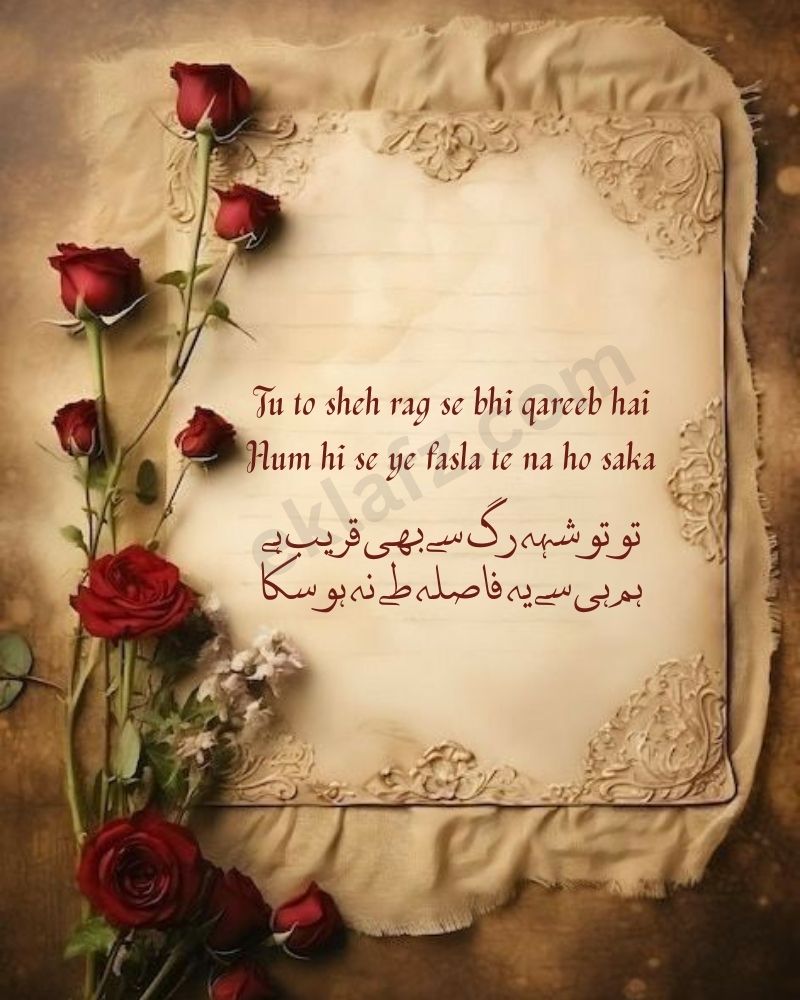 Tu to sheh rag se bhi qareeb hai
Hum hi se ye fasla te na ho saka
تو تو شہہ رگ سے بھی قریب ہے
ہم ہی سے یہ فاصلہ طے نہ ہو سکا
eklafz.com